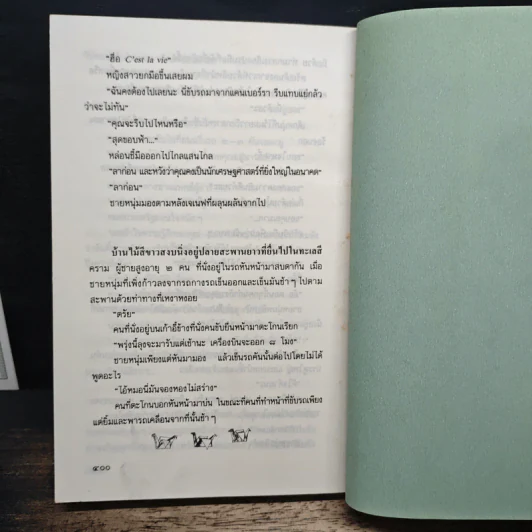 "ฮือ C'est la vie"
หญิงสาวยกมือขึ้นเสยผม
"ฉันคงต้องไปเลยนะ นี่ขับรถมาจากแคนเบอร์รา รีบแทบแย่กลัว
ว่าจะไม่ทัน"
"คุณจะรีบไปไหนหรือ"
"สุดขอบฟ้า..."
หล่อนชี้มือออกไปไกลแสนไกล
"ลาก่อน และหวังว่าคุณคงเป็นนักเศรษฐศาสตร์ที่ยิ่งใหญ่ในอนาคต"
"ลาก่อน"
ชายหนุ่มมองตามหลังเจนเฟที่ผลุนผลันจากไป
บ้านไม้สีขาวสงบนิ่งอยู่ปลายสะพานยาวที่ยื่นไปในทะเลสี
คราม ผู้ชายสูงอายุ ๒ คน ที่นั่งอยู่ในรถหันหน้ามาสบตากัน เมื่อ
ชายหนุ่มที่เพิ่งก้าวลงจากรถกางรถเข็นออกและเข็นมันช้าๆ ไปตาม
สะพานด้วยท่าทางที่เหงาหงอย
"ตรัย"
คนที่นั่งอยู่บนเก้าอี้ข้างที่นั่งคนขับยืนหน้ามาตะโกนเรียก
"พรุ่งนี้ลุงจะมารับแต่เช้านะ เครื่องบินจะออก ๘ โมง"
ชายหนุ่มเพียงแต่หันมามอง แล้วเข็นรถคันนั้นต่อไปโดยไม่ได้
พูดอะไร
"ไอ้หมอนี่มันจองหองไม่สร่าง"
คนที่ตะโกนบอกหันหน้ามาบ่น ในขณะที่คนที่ทำหน้าที่ขับรถเพียง
แต่ยิ้มและพารถเคลื่อนจากที่นั้นช้าๆ
๕๐๐